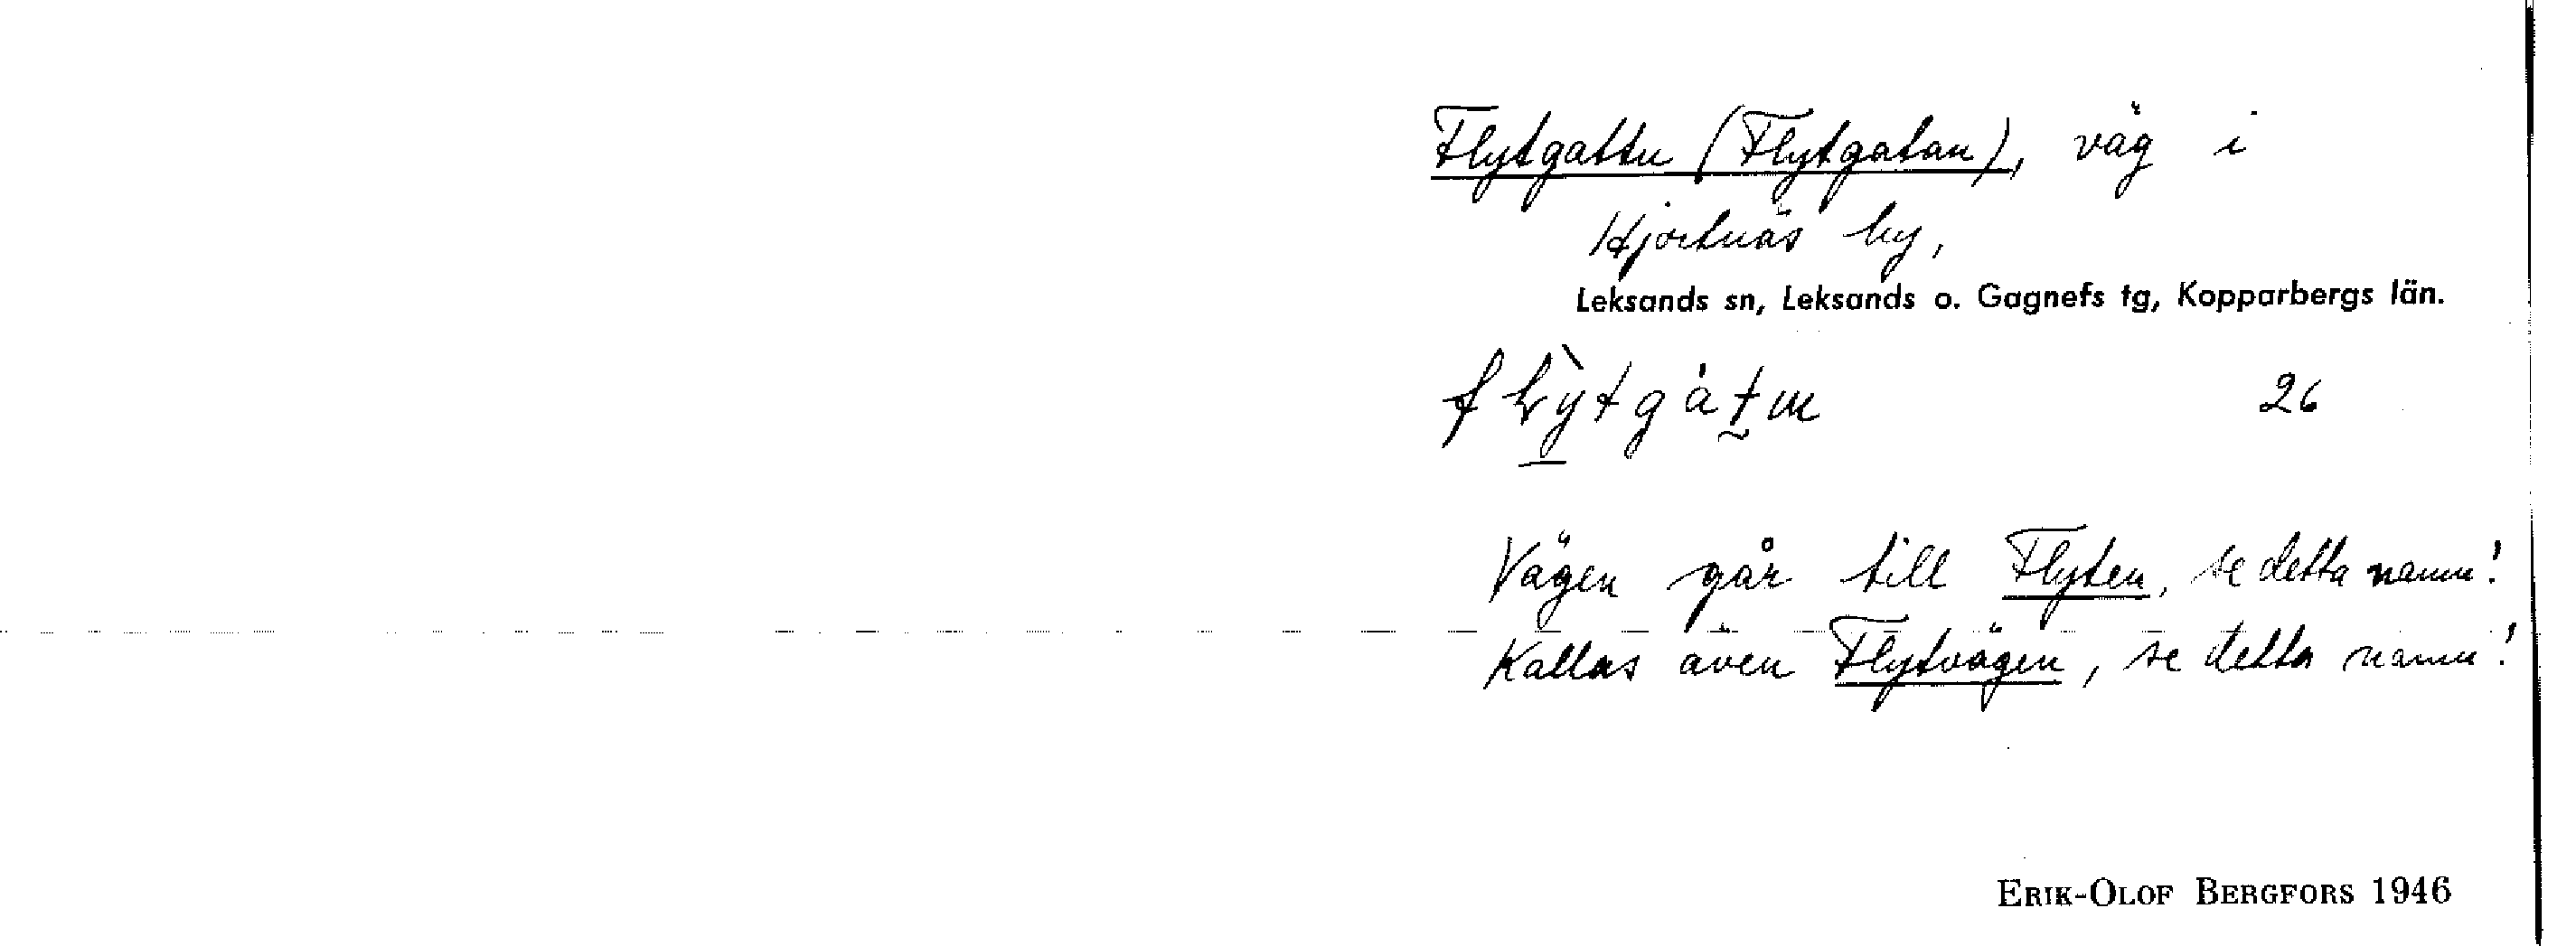 Flytgattu (Flytgatan), väg i
Hjortnäs by,
Leksands sn, Leksands o. Gagnefs tg, Kopparbergs län.
26
Vägen går till Flyten, se detta namn!
Kallas även Flytvägen, se detta namn!
ERIK-OLOF BERGFORS 1946